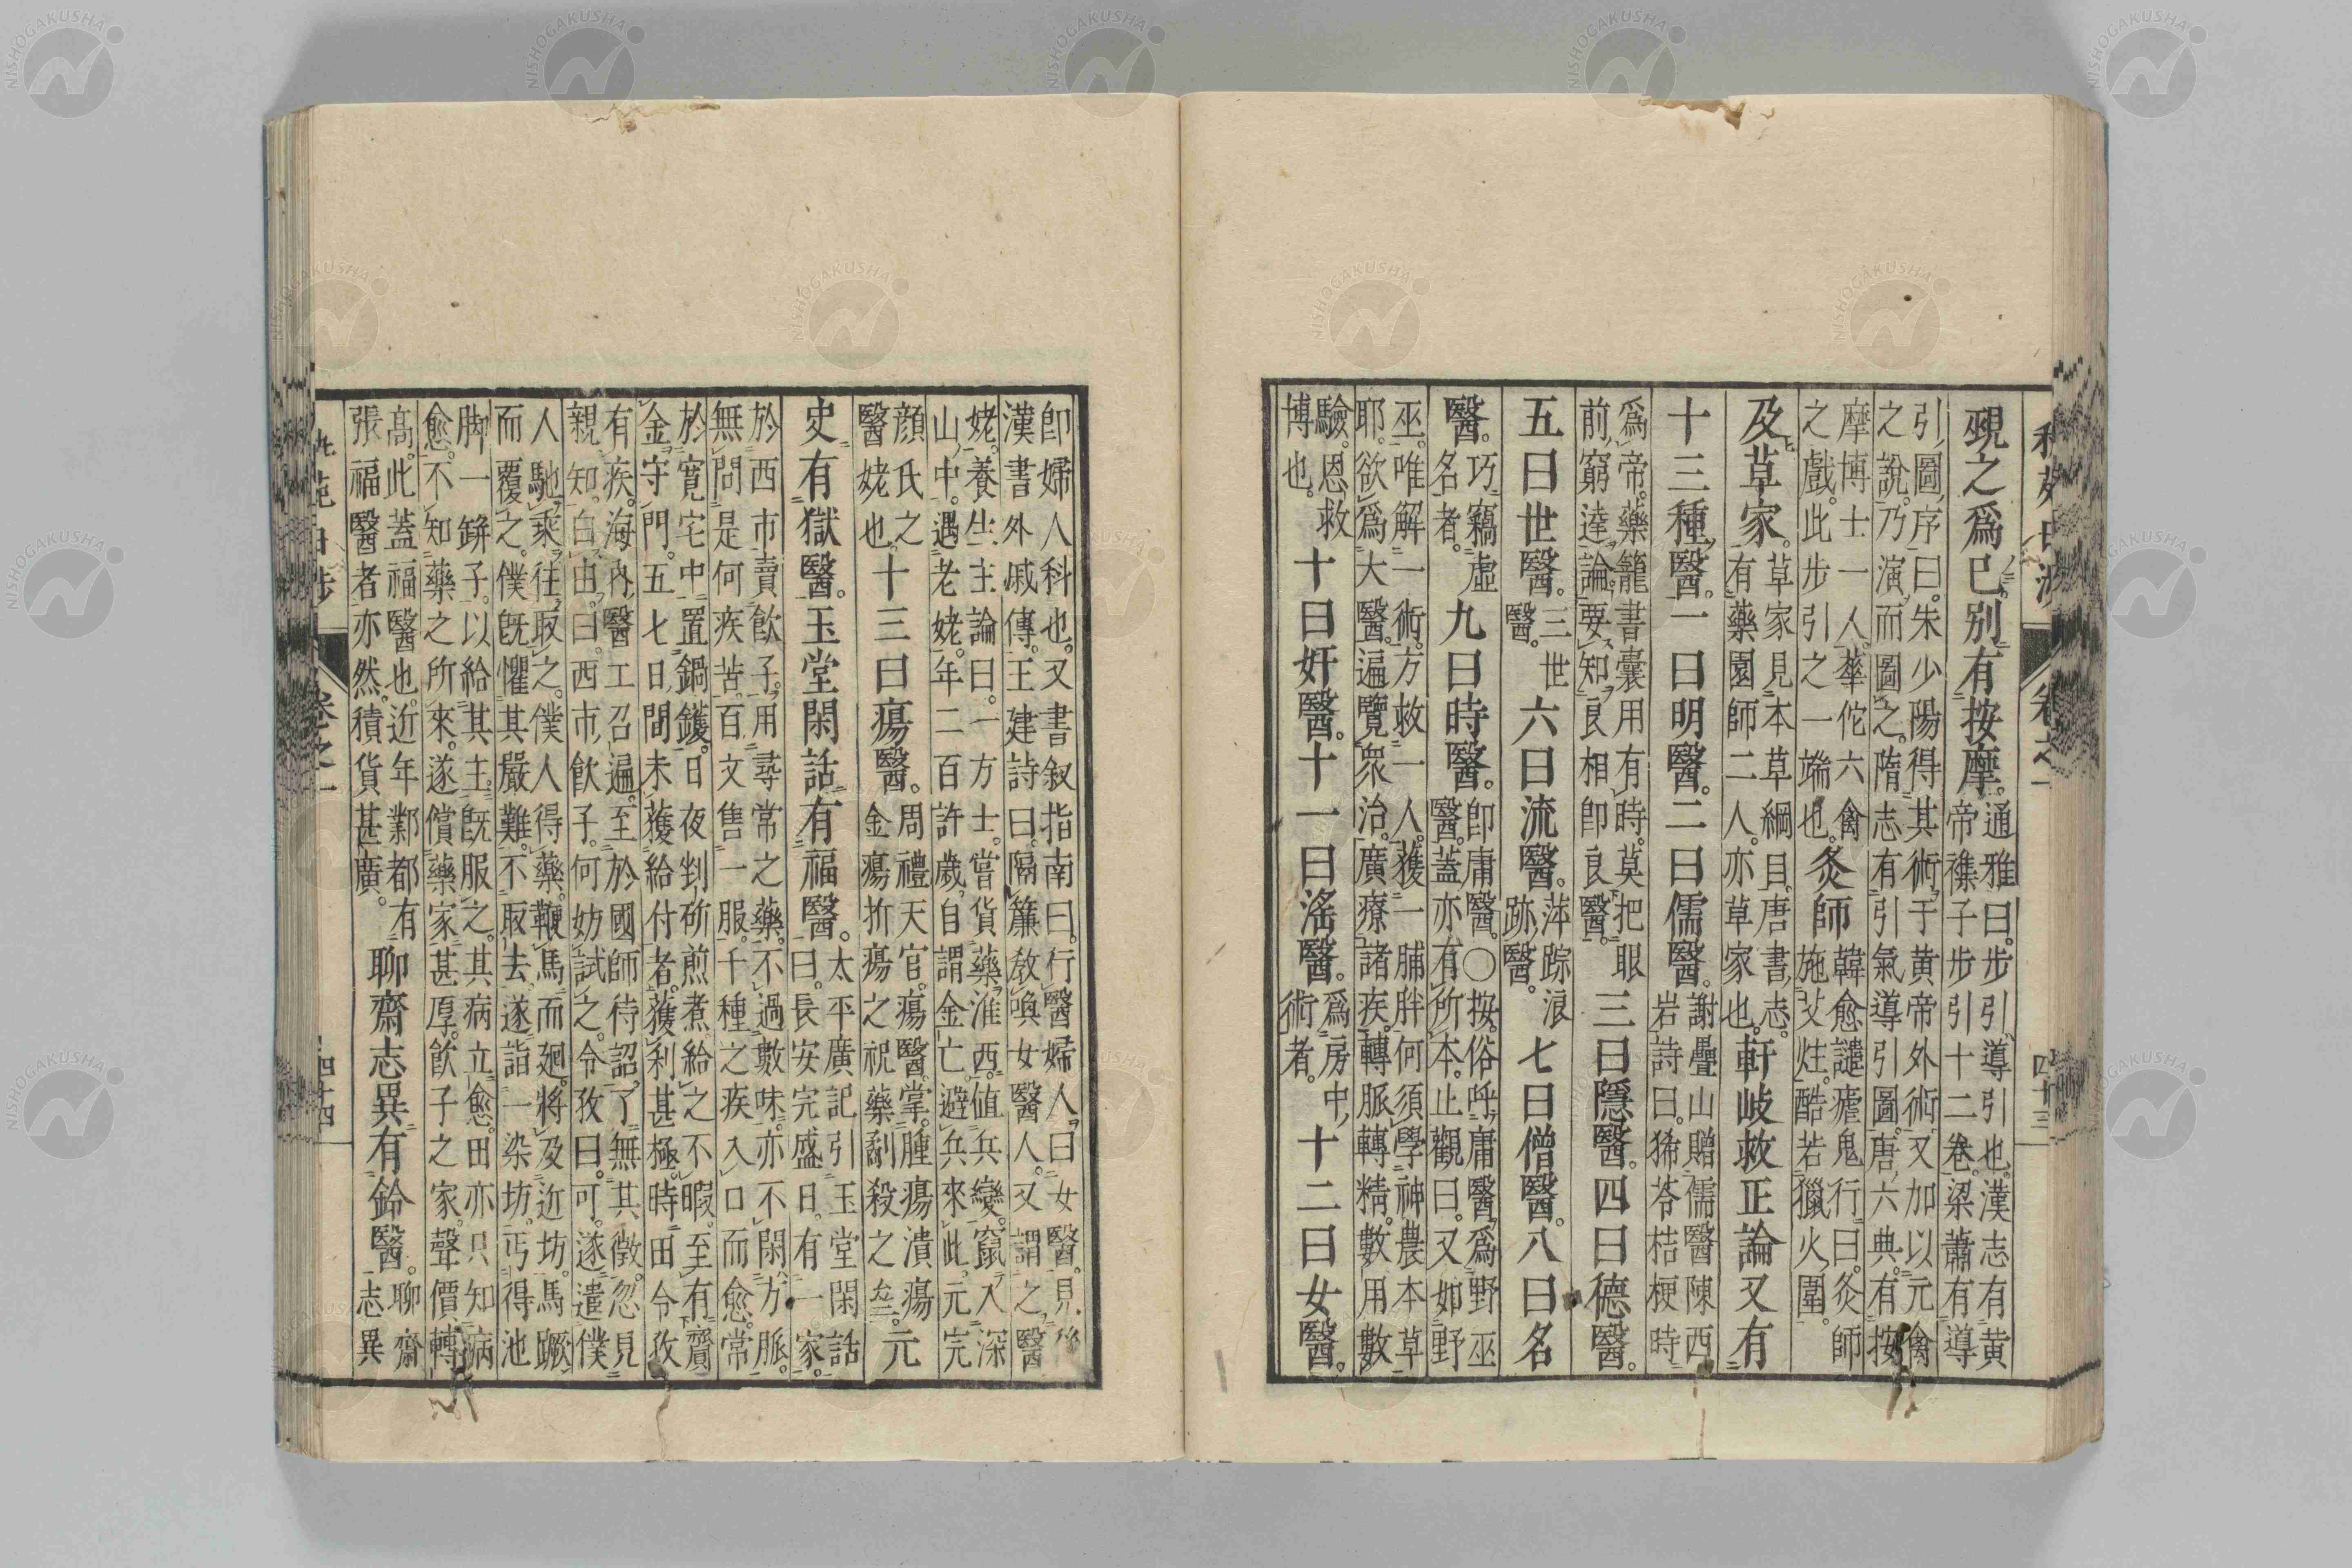 覡之爲巳。別有按摩。通雅曰。步引、導引也。漢志有黄
帝襍子步引十二卷。梁蕭有導
引、圖、序曰。朱少陽得其術、于黄帝外術、又加以元禽
之說。乃演而圖之。隋志有引氣導引圖。唐六典。有按
摩博士一人。華佗六禽
之戲。此步引之一端也。灸師韓愈譴瘧鬼行曰。灸師
施艾炷。酷若獵火圍。
及草家。草家見本草綱目。唐書志。
有藥園師二人。亦草家也。軒岐救正論又有
十三種醫。一曰明醫。二曰儒醫。謝疊山贈儒醫陳西
岩詩曰。豨苓桔梗時
爲帝。藥籠書囊用有時。莫把眼
前窮達論。要知良相即良醫。三曰隱醫。四曰德醫。
五曰世醫。三世
醫。六曰流醫。萍踪浪
跡醫。七曰僧醫。八曰名
醫。巧竊虛
名者。九曰時醫。即庸醫。〇按。俗呼庸醫爲野巫
醫。蓋亦有所本。止觀曰。又如野
巫。唯解一術。方救一人。獲一脯胖何須學神農本草
耶。欲爲大醫。遍覽衆治。廣療諸疾。轉脈轉精。數用數
驗。恩救
博也。十曰奸醫。十一曰滛醫。爲房中
術者。十二曰女醫。
卷之一
四十三
即婦人科也。又書叙指南曰。行醫婦人、曰女醫。見後
漢書外戚傳。王建詩曰。隔簾敎喚女醫人。又謂之醫
姥。養生主論曰。一方士。嘗貨藥淮西。値兵變。竄入深
山中。遇老姥。年二百許歲。自謂金亡。避兵來此。元完
顔氏之
醫姥也。十三曰瘍醫。周禮天官。瘍醫。掌腫瘍潰瘍
金瘍折瘍之祝藥劀殺之齊。元
史有獄醫。玉堂閑話有福醫。太平廣記引玉堂閑話
曰。長安完盛日。有一家。
於西市賣飮子。用尋常之藥。不過數味。亦不閑方脈。
無問是何疾苦。百文售一服。千種之疾入口而愈。常
於寛宅中置鍋鑊。日夜剉斫煎煮。給之不暇。至有齎
金守門。五七日間未獲給付者。獲利甚極。時田令孜
有疾。海內醫工召遍。至於國師待詔。了無其徵。忽見
親知。白田曰。西市飮子。何妨試之。令孜曰。可。遂遣僕
人馳乘往取之。僕人得藥。鞭馬而廻。將及近坊。馬蹶
而覆之。僕旣懼其嚴難。不取去。遂詣一染坊。丐得池
脚一缾子。以給其主。旣服之。其病立愈。田亦只知病
愈。不知藥之所來。遂償藥家甚厚。飮子之家。聲價轉
髙。此蓋福醫也。近年鄴都有
張福醫者亦然。積貨甚廣。聊齋志異有鈴醫。聊齋
志異
卷之一
四十四